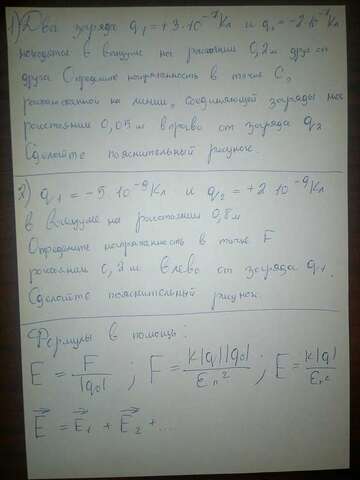 1) Два заряда q₁ = +3·10⁻⁷Кл и q₂ = -2·10⁻⁷Кл
находятся в вакууме на расстоянии 0,2м друг от
друга Определите напряженность в точке C,
расположенной на линии, соединяющей заряды на
расстоянии 0,05м вправо от заряда q₂
Сделайте пояснительный рисунок.
2) q₁ = -5·10⁻⁹Кл и q₂ = +2·10⁻⁹Кл
в вакууме на расстоянии 0,8м
Определите напряженность в точке F
влево от заряда q₁.
Сделайте пояснительный рисунок.
Формулы в помощь:
E = F/|q₀| ; F = k|q||q₀|/εr² ; E = k|q|/εr²
E⃗ = E⃗₁ + E⃗₂ + ...